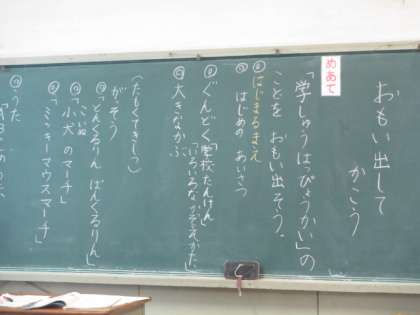 おもい出して
かこう
めあて
「学しゅうはっぴょうかい」の
ことを おもい出そう。
はじまるまえ
はじめの あいさつ
ぐんどく「学校たんけん」
「いろいろなかぞえかた」
大きなかぶ
(たもくてきしつ)
がっそう
「どんぐるりん ぱんぐるりん」
こいぬ
「小犬のマーチ」
「ミッキーマウスマーチ」
うた